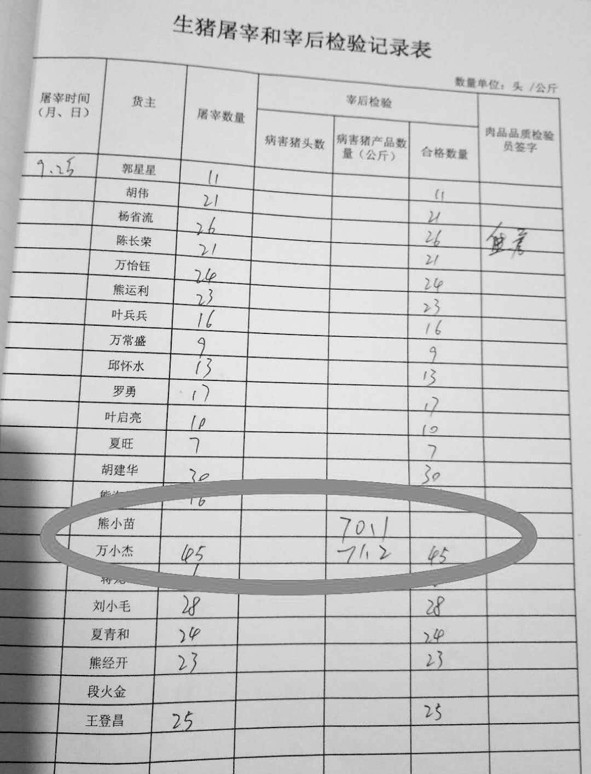 生猪屠宰和宰后检验记录表
数量单位：头 /公斤
屠宰时间（月、日） 货主 屠宰数量 宰后检验 肉品品质检验员签字
病害猪头数 病害猪产品数量（公斤） 合格数量
9.25 郭星星 11 11
胡伟 21 21
杨省流 26 26
陈长荣 21 21
万怡钰 24 24
熊运利 23 23
叶兵兵 16 16
万常盛 9 9
邱怀水 13 13
罗勇 17 17
叶启亮 10 10
夏旺 7 7
胡建华 30 30
16
熊小苗 70.1
万小杰 45 71.2 45
刘小毛 28 28
夏青和 24 24
熊经开 23 23
段火金
王登昌 25 25